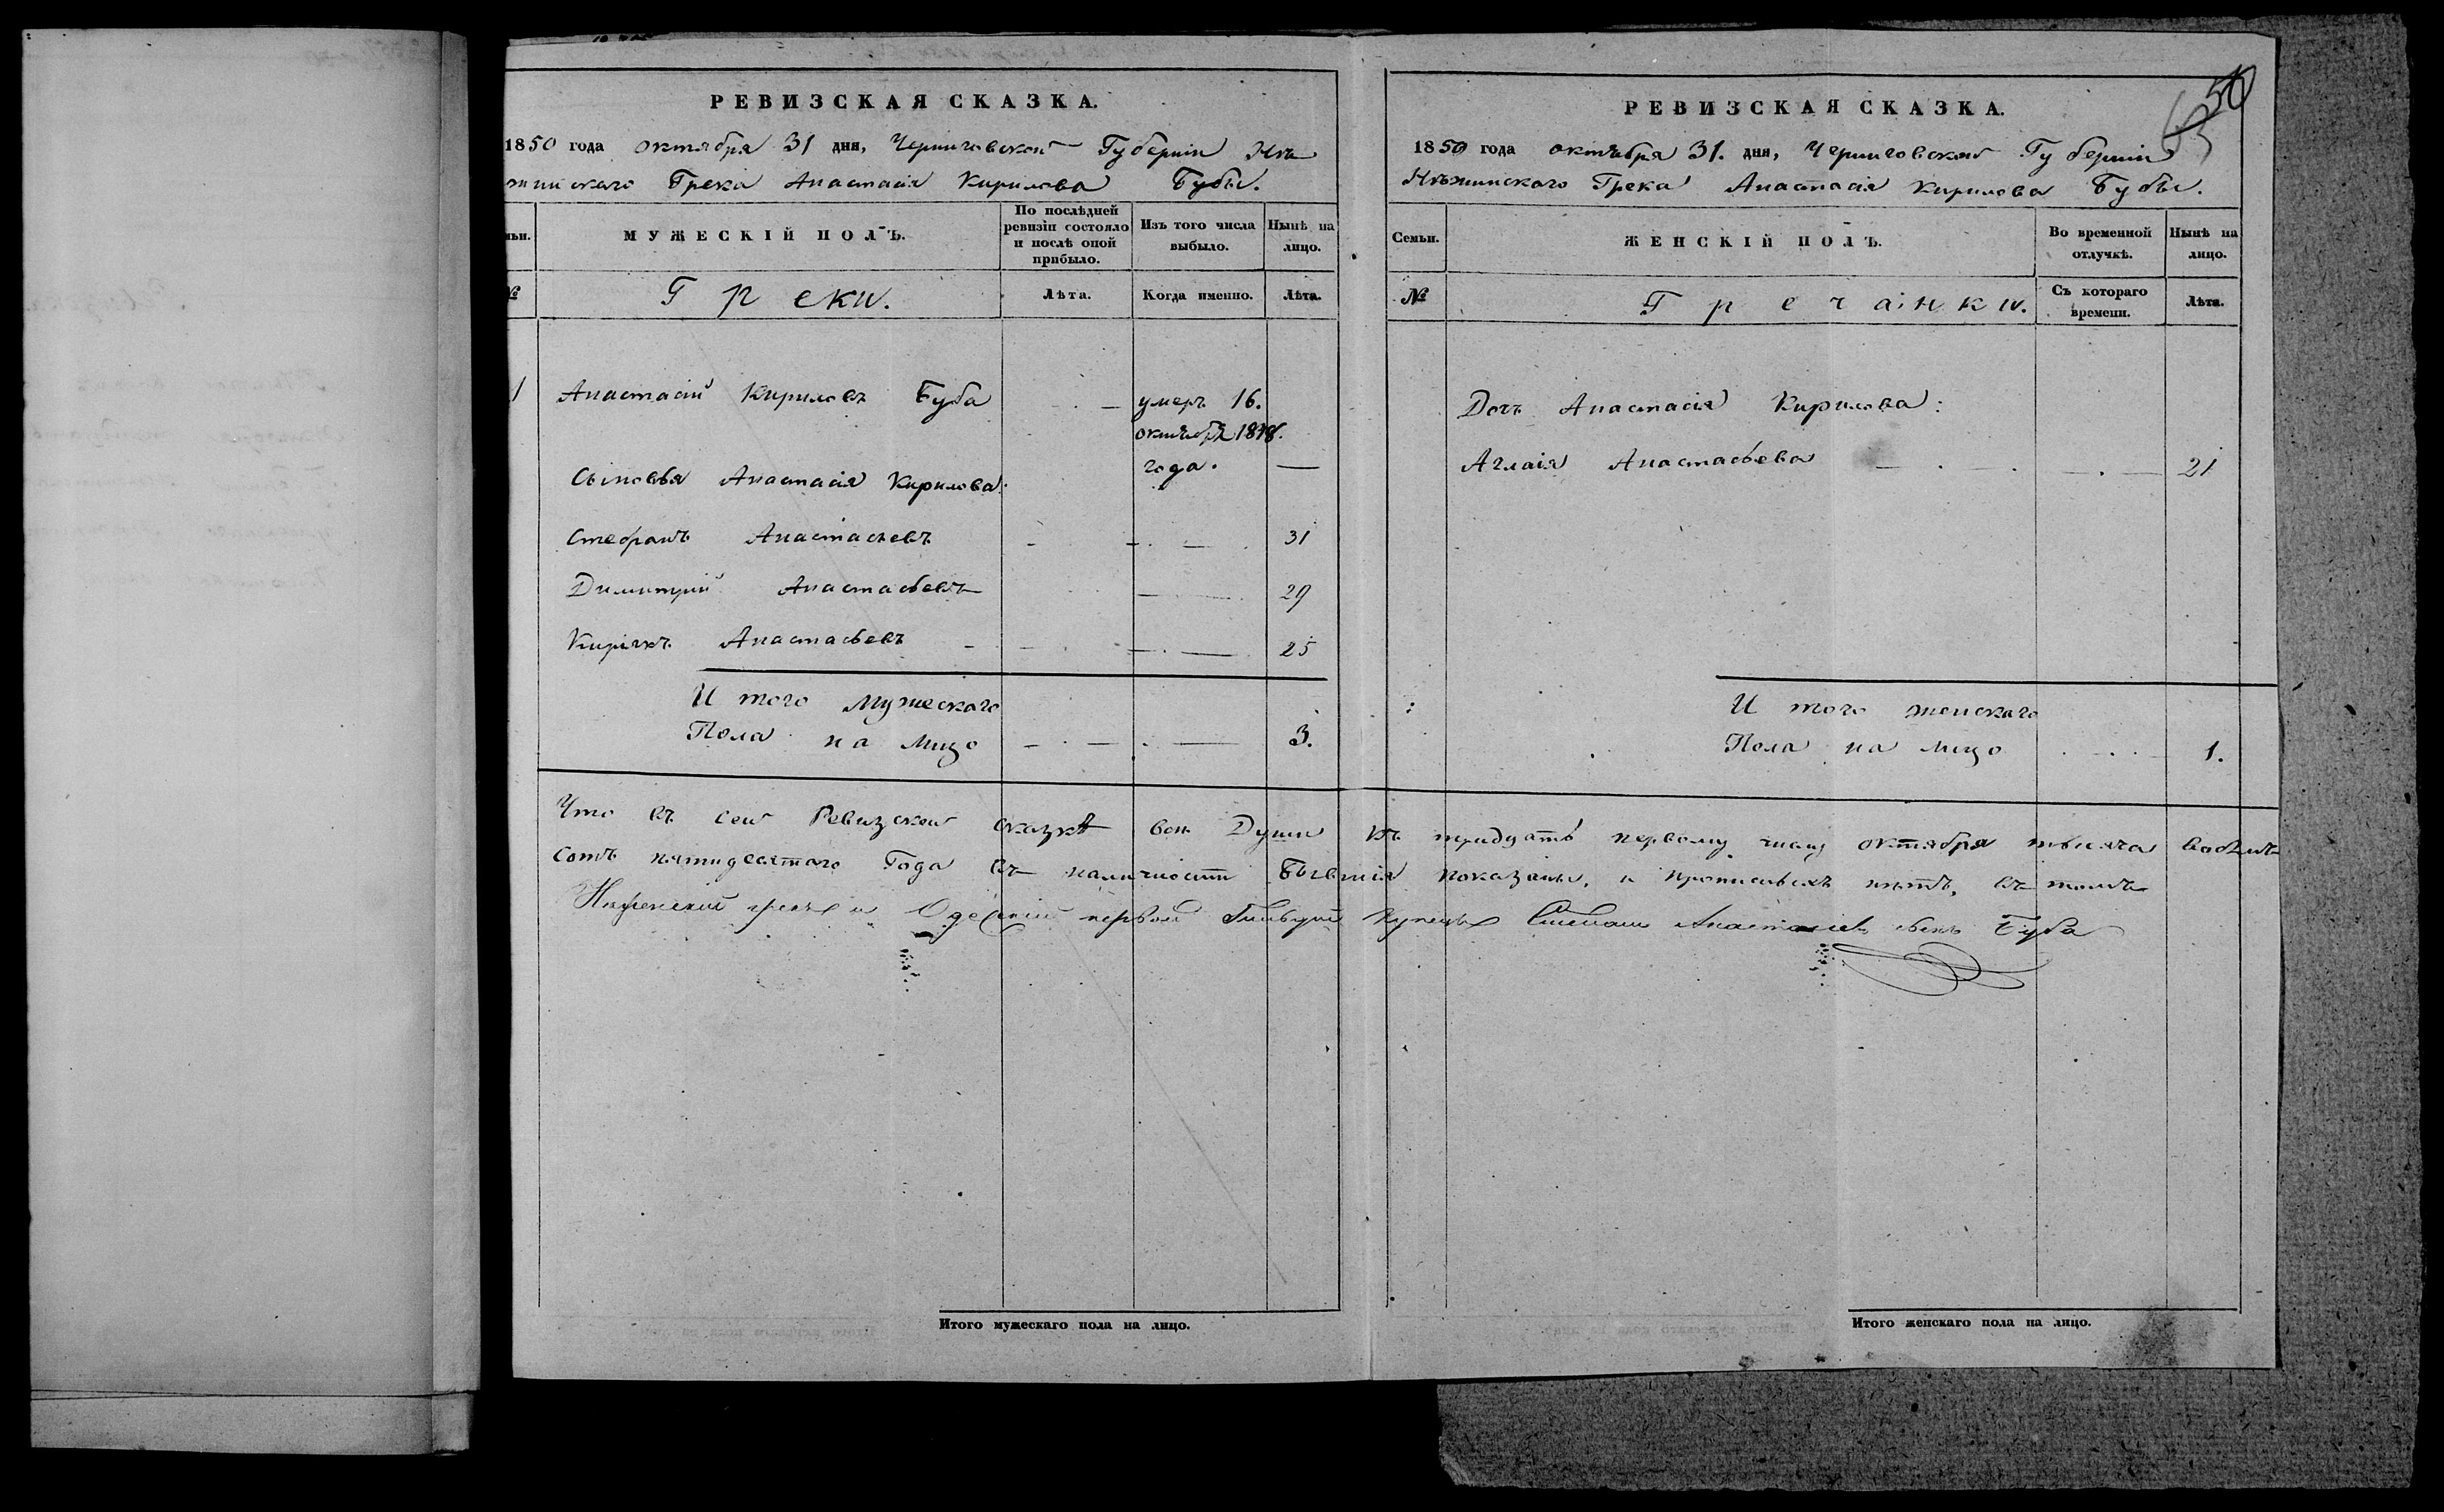 РЕВИЗСКАЯ СКАЗКА.
1850 года октября 31 дня, Черниговской Губернии Нѣ
жинскаго Грека Анастасія Кирилова Бубы.
МУЖЕСКІЙ ПОЛЪ.
По послѣдней ревизіи состояло и послѣ оной прибыло.
Изъ того числа выбыло.
Нынѣ на лицо.
№
Греки.
Лѣта.
Когда именно.
Лѣта.
1 Анастасій Кириловъ Буба умеръ 16.
октября 1848.
года. —
Сыновья Анастасія Кирилова:
Стефанъ Анастасьевъ 31
Димитрій Анастасьевъ 29
Кирїякъ Анастасьевъ 25
И того мужескаго
Пола на лицо 3.
РЕВИЗСКАЯ СКАЗКА.
50
63
1850 года октября 31. дня, Черниговской Губерніи
Нѣжинскаго Грека Анастасія Кирилова Бубы.
Семьи.
ЖЕНСКІЙ ПОЛЪ.
Во временной отлучкѣ.
Нынѣ на лицо.
№
Гречанки.
Съ котораго времени.
Лѣта.
Дочь Анастасія Кирилова:
Аглаія Анастасьева 21
И того женскаго
Пола на лицо 1.
Что въ сей Ревизской сказкѣ всѣ Души къ тридцать первому числу октября мѣсяца
сотъ пятидесятаго Года въ наличности бывшія показаны, и прописныхъ нѣтъ, въ томъ
Нѣженскій грекъ и Одескій первой Гильдіи Купецъ Стефанъ Анастасіевъ сынъ Буба
Итого мужескаго пола на лицо.
Итого женскаго пола на лицо.